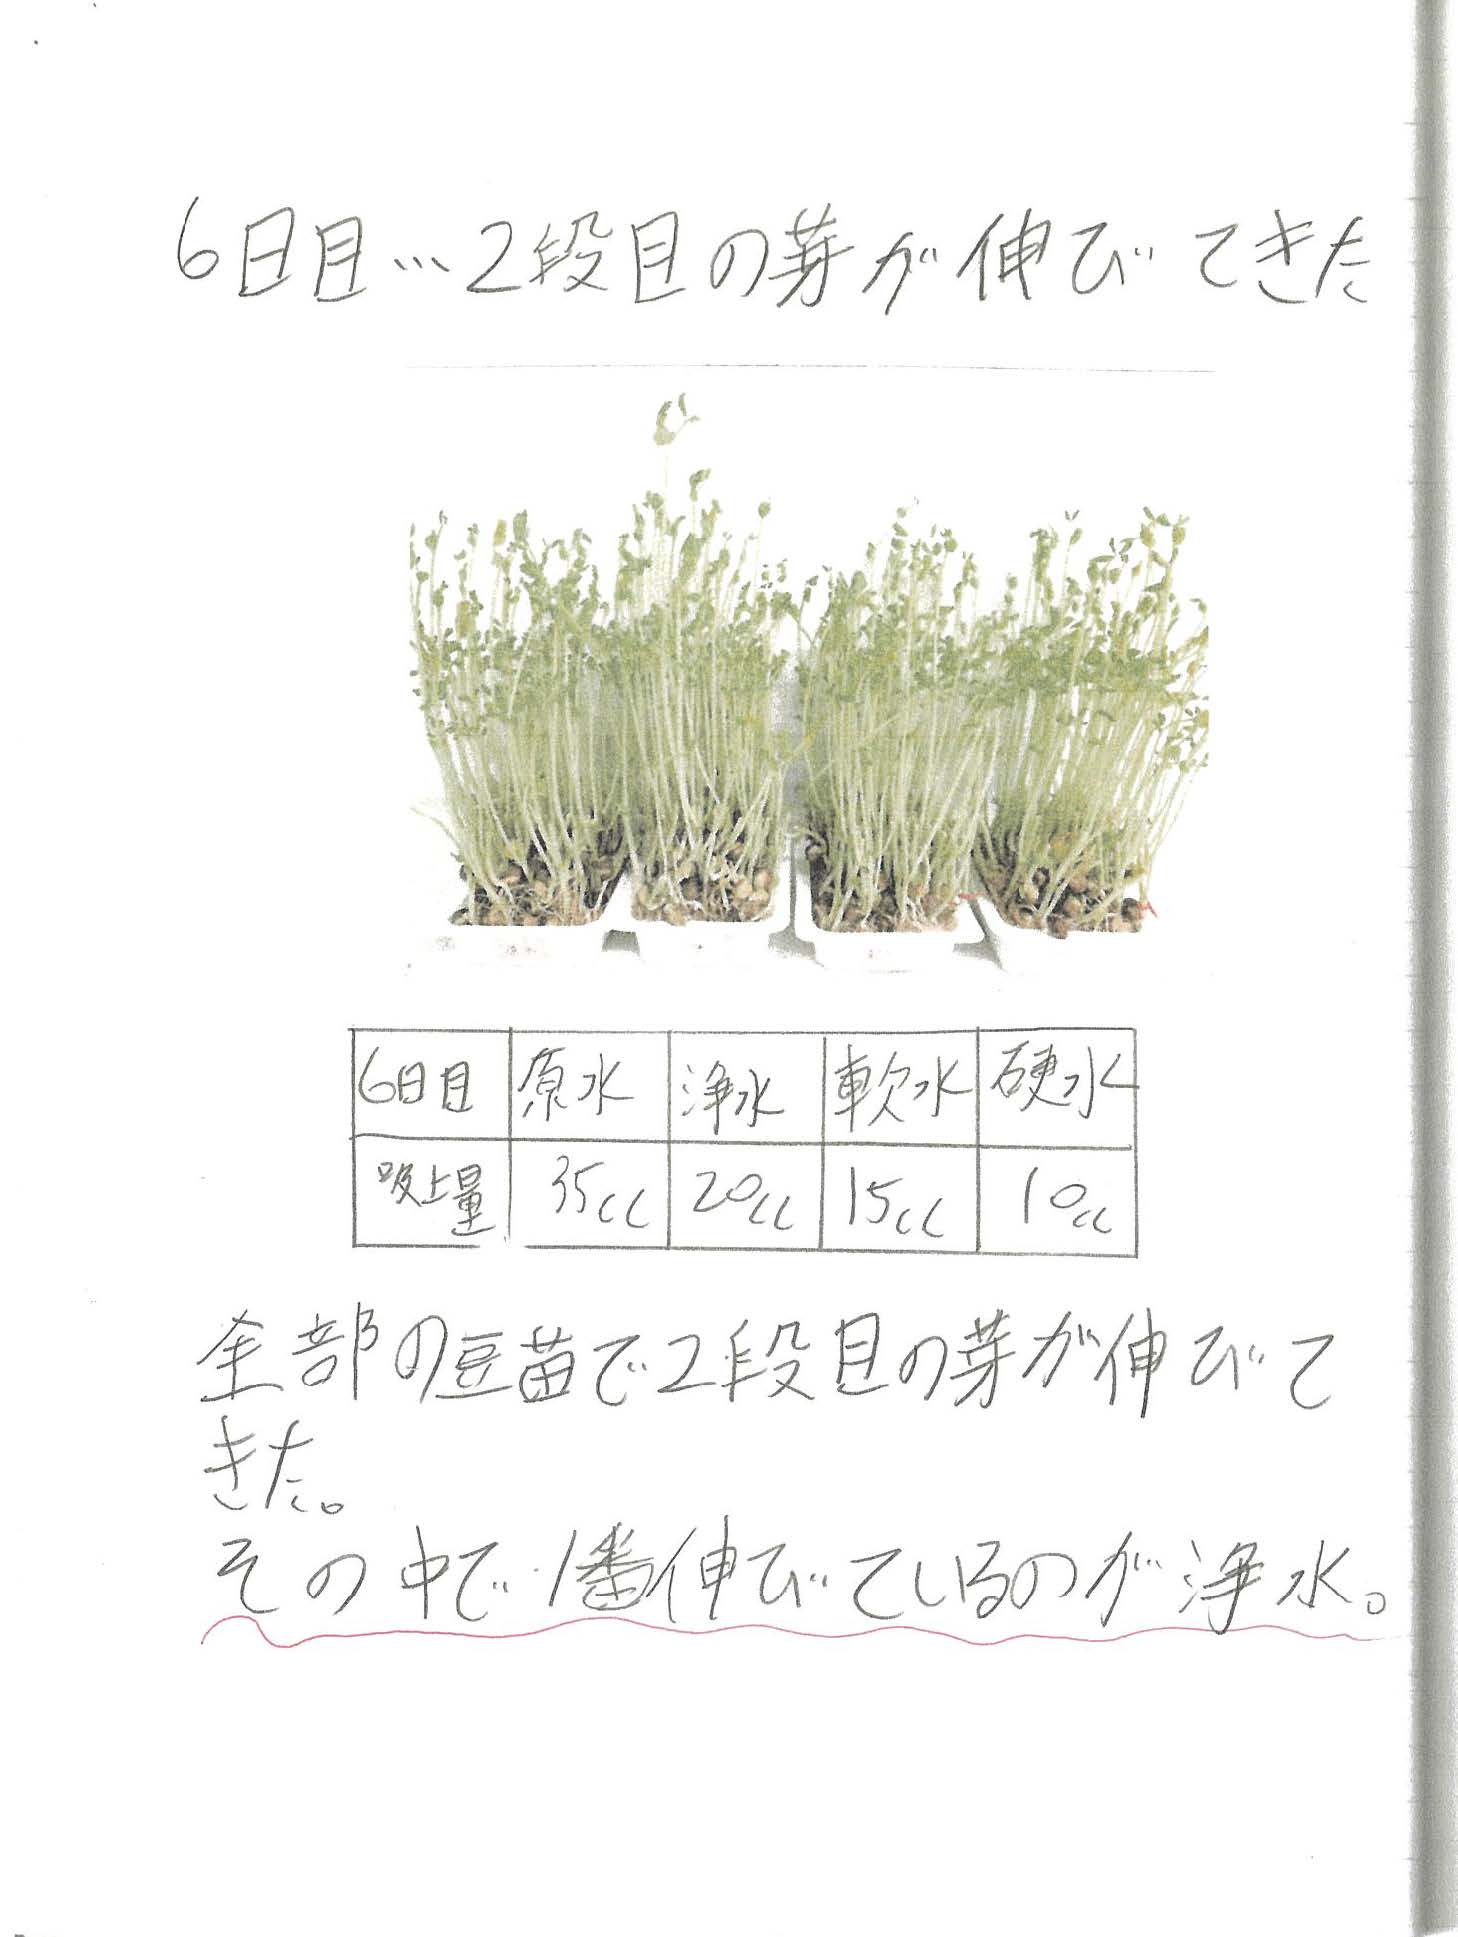 6日目…2段目の芽が伸びてきた
6日目 原水 浄水 軟水 硬水
吸上量 35cc 20cc 15cc 10cc
全部の豆苗で2段目の芽が伸びて
きた。
その中で1番伸びているのが浄水。